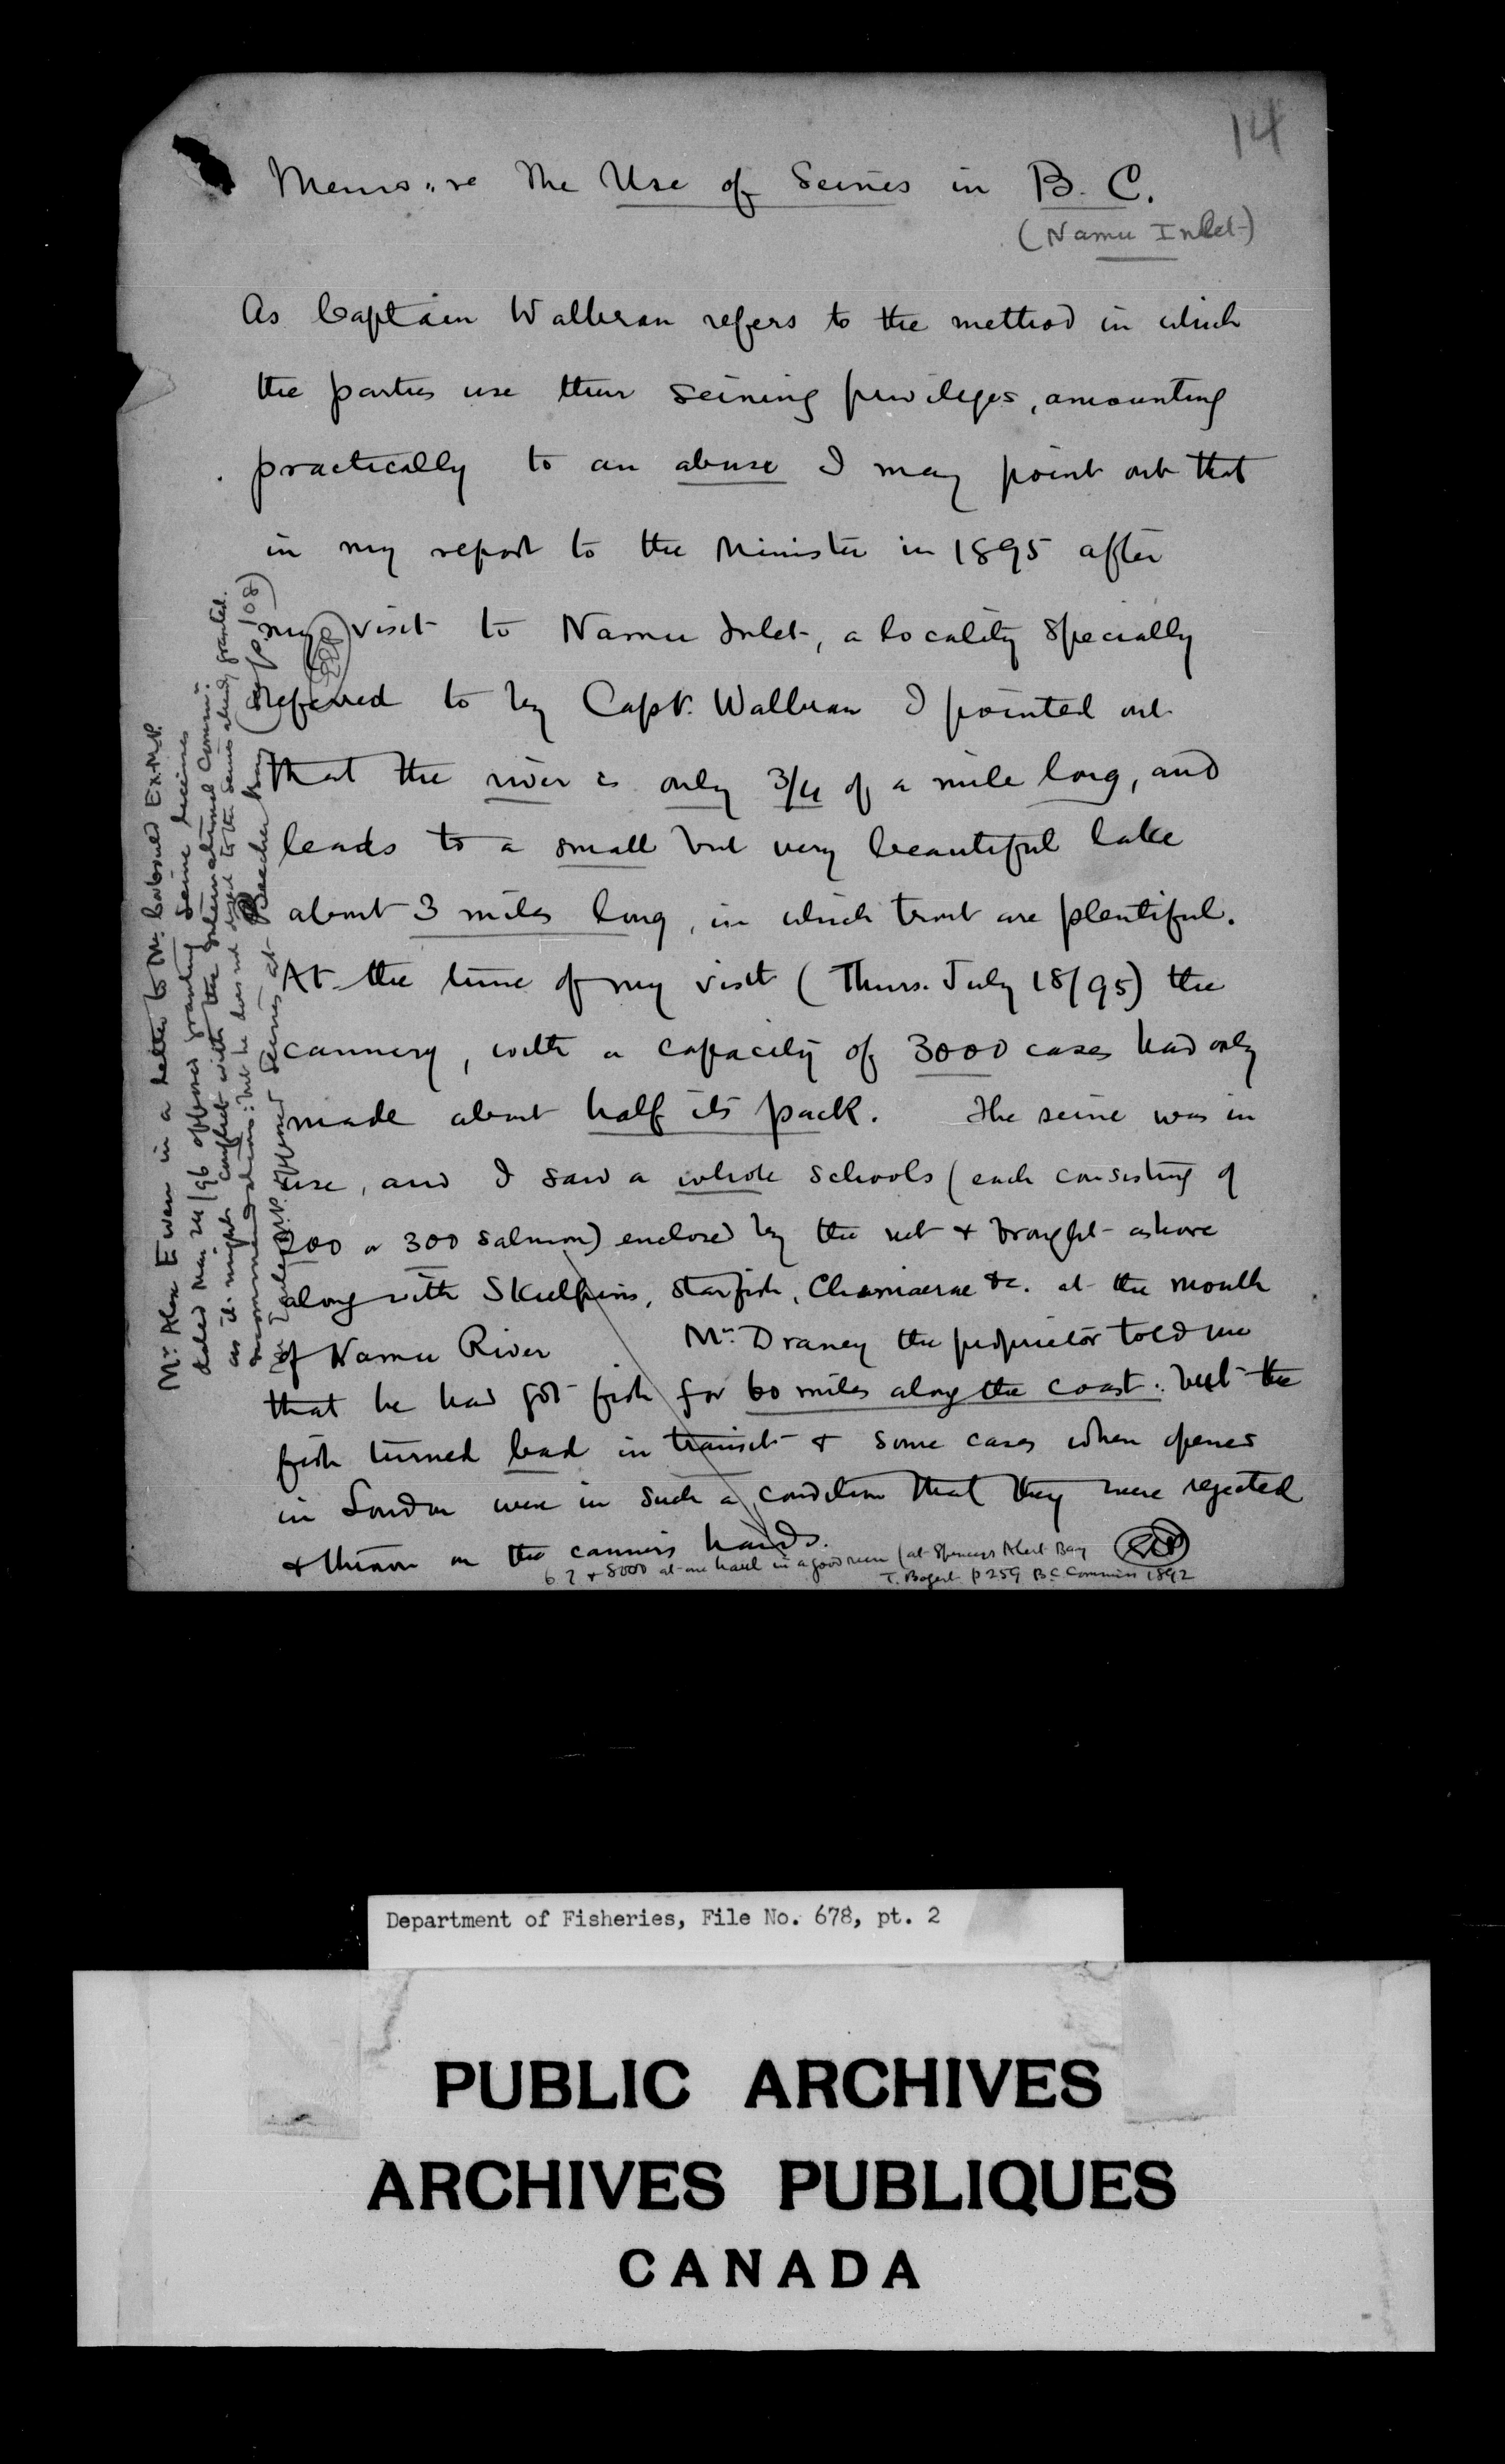 14
Memo: re The Use of Seines in B. C.
(Namu Inlet)
As Captain Walbran refers to the method in which
the parties use their seining privileges, amounting
practically to an abuse I may point out that
in my report to the Minister in 1895 after
my visit to Namu Inlet, a locality specially
referred to by Capt. Walbran I pointed out
that the river is only 3/4 of a mile long, and
leads to a small but very beautiful lake
about 3 miles long, in which trout are plentiful.
At the time of my visit (Thurs. July 18/95) the
cannery, with a capacity of 3000 cases had only
made about half its pack. The seine was in
use, and I saw a whole schools (each consisting of
200 or 300 salmon) enclosed by the net & brought ashore
along with Skulpins, starfish, Chimaerae &c. at the mouth
of Namu River Mr. Draney the proprietor told me
that he had got fish for 60 miles along the coast: but the
fish turned bad in transit & some cases when opened
in London were in such a condition that they were rejected
& thrown on the canner's hands.
6 7 & 8000 at one haul in a good run (at Spencers Alert Bay
T. Bogert p 259 B.C. Commission 1892
Mr Alex Ewen in a letter to Mr. Corbould Ex.M.P.
dated Mar 24/96 opposed granting Seine licenses
as it might conflict with the International Commn:
recommendations: but he does not object to the seines already granted.
opposed Seines at Beecher Bay (p. 108)
Department of Fisheries, File No. 678, pt. 2
PUBLIC ARCHIVES
ARCHIVES PUBLIQUES
CANADA